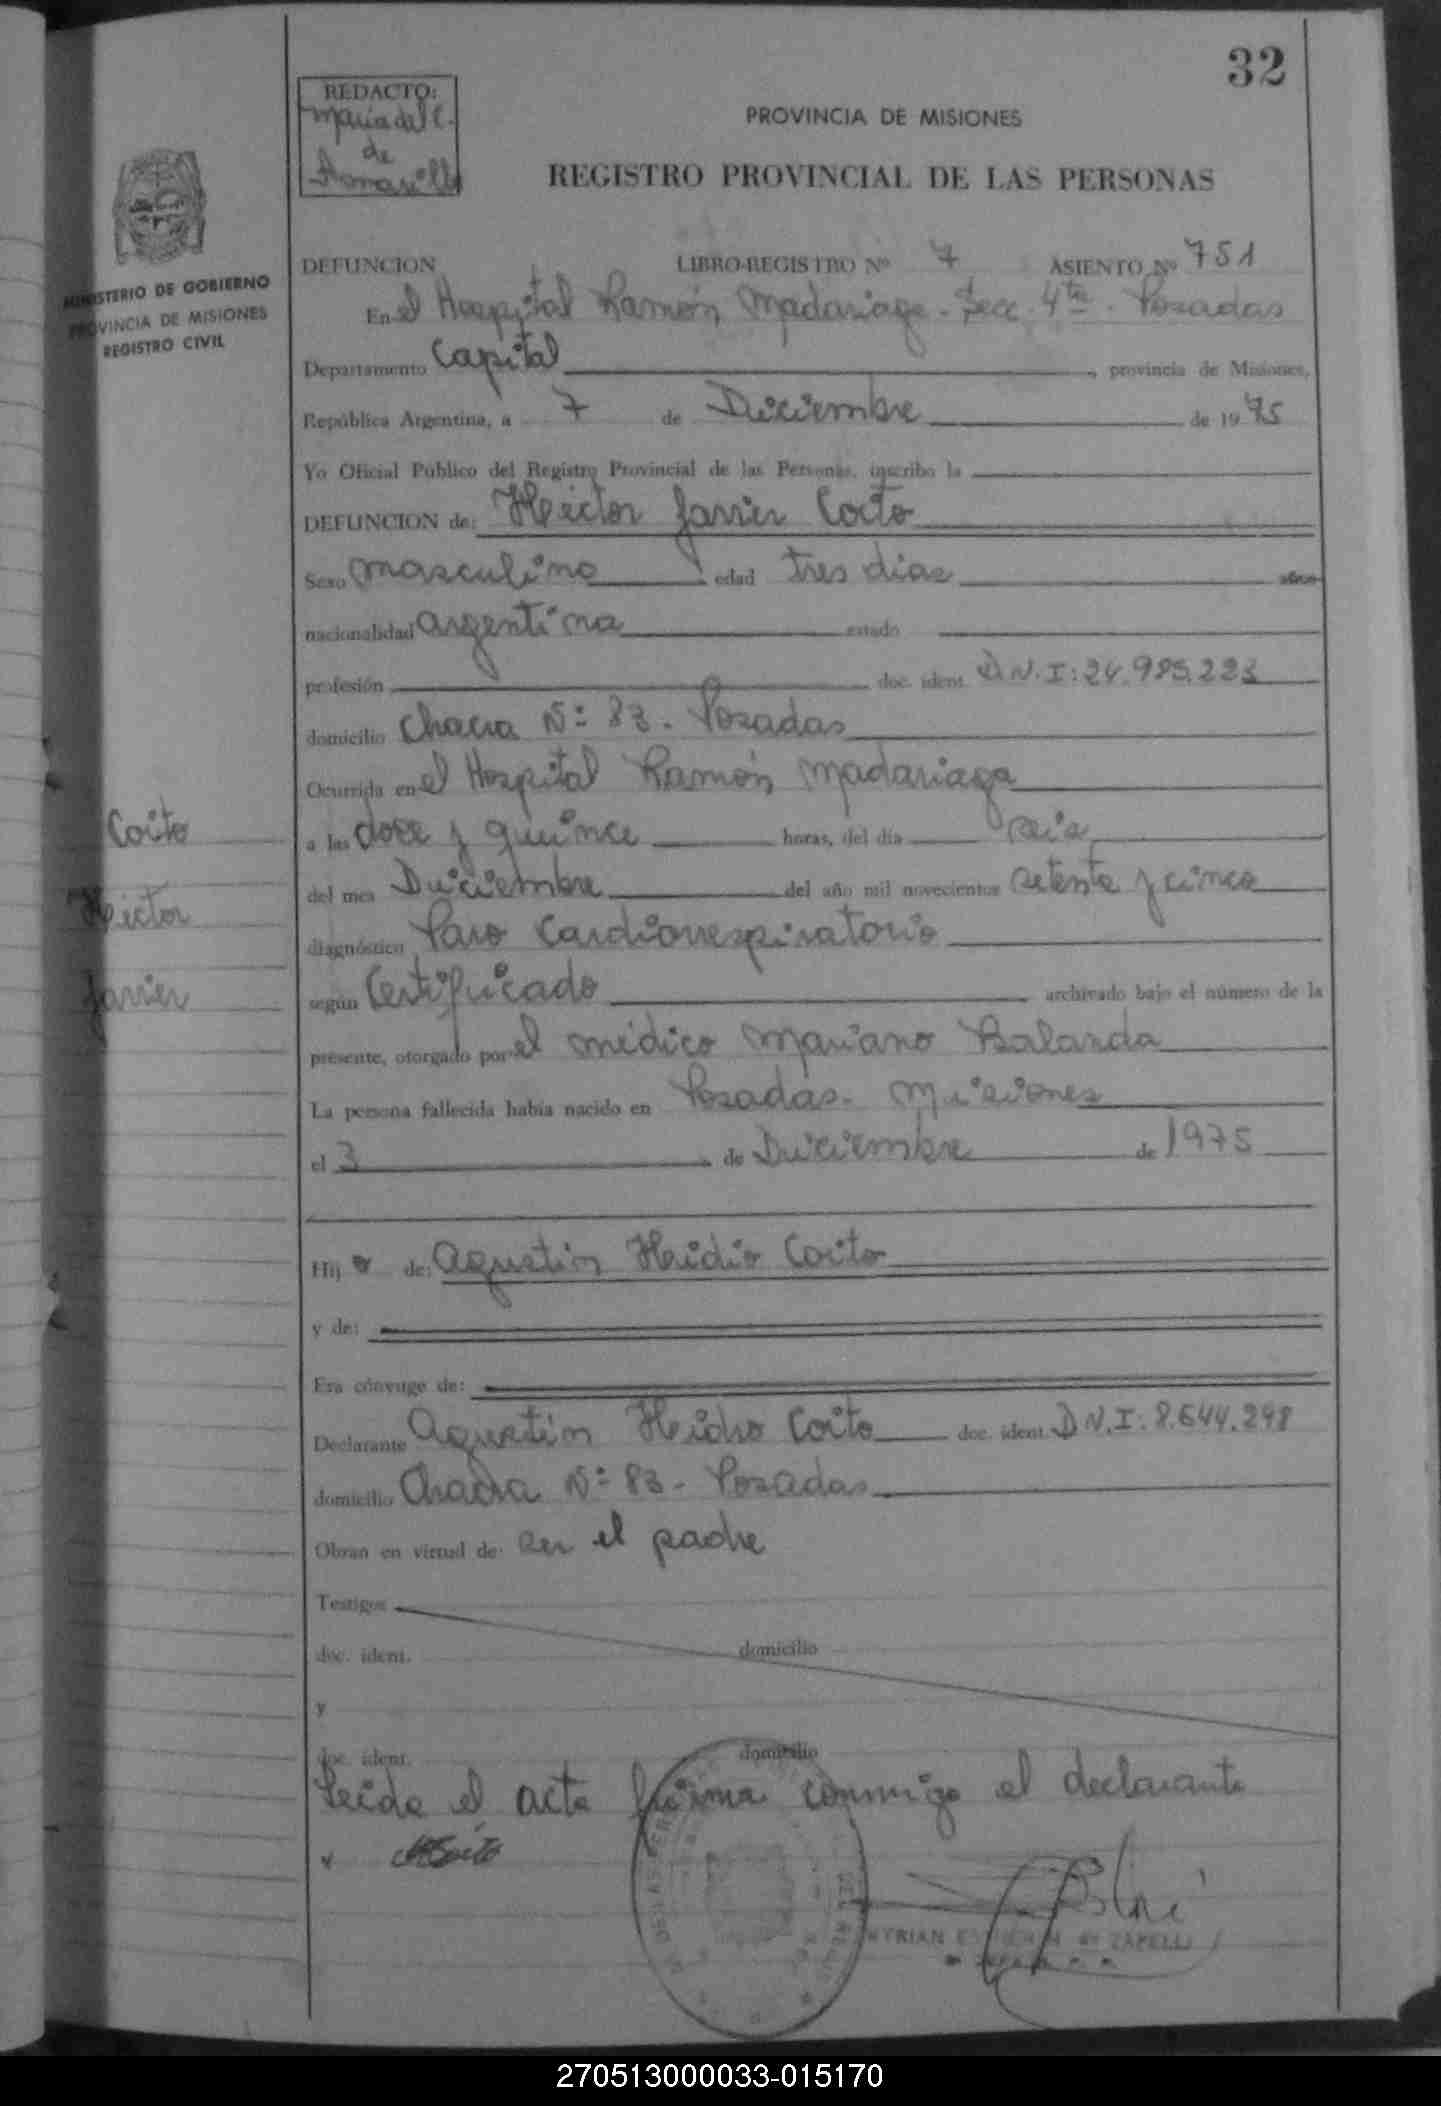 32
REDACTO:
Maria del C.
de
PROVINCIA DE MISIONES
REGISTRO PROVINCIAL DE LAS PERSONAS
MINISTERIO DE GOBIERNO
PROVINCIA DE MISIONES
REGISTRO CIVIL
DEFUNCION LIBRO-REGISTRO Nº 7 ASIENTO Nº 751
En el Hospital Ramón Madariaga - Secc. 4ta - Posadas
Departamento Capital, provincia de Misiones,
República Argentina, a 7 de Diciembre de 1975
Yo Oficial Público del Registro Provincial de las Personas, inscribo la
DEFUNCION de: Héctor Javier Coito
Sexo masculino edad tres dias años
nacionalidad argentina estado
profesión doc. ident. D.N.I: 24.985.223
domicilio Chacra Nº 83 - Posadas
Ocurrida en el Hospital Ramón Madariaga
a las doce y quince horas, del día seis
del mes Diciembre del año mil novecientos setenta y cinco
diagnóstico Paro Cardiorrespiratorio
según Certificado archivado bajo el número de la
presente, otorgado por el médico Mariano Balanda
La persona fallecida había nacido en Posadas - Misiones
el 3 de Diciembre de 1975
Hijo de: Agustín Heidio Coito
y de:
Era cónyuge de:
Declarante Agustín Heidio Coito doc. ident. D.N.I: 8.644.298
domicilio Chacra Nº 83 - Posadas
Obran en virtud de ser el padre
Testigos
doc. ident. domicilio
y
doc. ident. domicilio
Leida el acta firma conmigo el declarante
Coito
Héctor
Javier
270513000033-015170